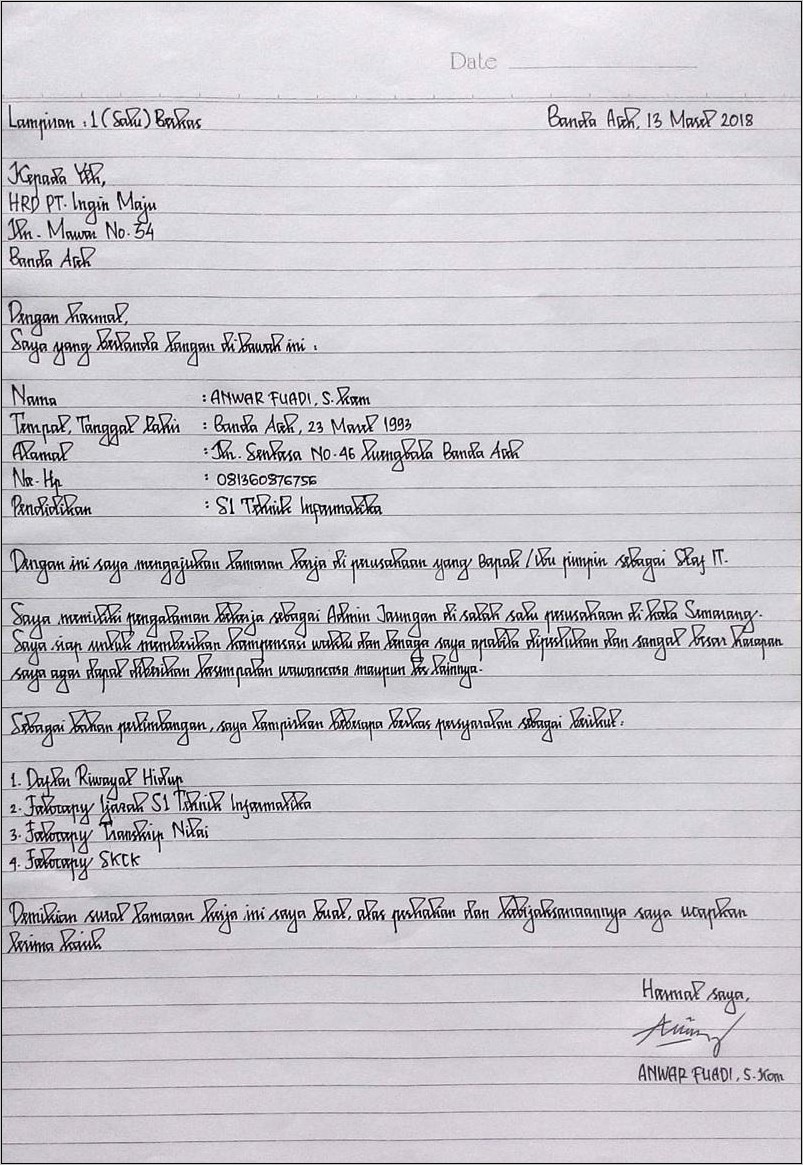 Date
Lampiran : 1 (Satu) Berkas Banda Aceh, 13 Maret 2018
Kepada Yth,
HRD PT. Ingin Maju
Jln. Mawar No. 54
Banda Aceh
Dengan hormat,
Saya yang bertanda tangan di bawah ini :
Nama : ANWAR FUADI, S. Kom
Tempat, Tanggal Lahir : Banda Aceh, 23 Maret 1993
Alamat : Jln. Sentosa No. 46 Luengbata Banda Aceh
No. Hp : 081360876756
Pendidikan : S1 Teknik Informatika
Dengan ini saya mengajukan lamaran kerja di perusahaan yang Bapak / Ibu pimpin sebagai Staf IT.
Saya memiliki pengalaman bekerja sebagai Admin Jaringan di salah satu perusahaan di kota Semarang.
Saya siap untuk memberikan kompensasi waktu dan tenaga saya apabila diperlukan dan sangat besar harapan
saya agar dapat diberikan kesempatan wawancara maupun tes lainnya.
Sebagai bahan pertimbangan, saya lampirkan beberapa berkas persyaratan sebagai berikut :
1. Daftar Riwayat Hidup
2. Fotocopy Ijazah S1 Teknik Informatika
3. Fotocopy Transkip Nilai
4. Fotocopy SKCK
Demikian surat lamaran kerja ini saya buat, atas perhatian dan kebijaksanaannya saya ucapkan
terima kasih
Hormat saya,
ANWAR FUADI, S. Kom